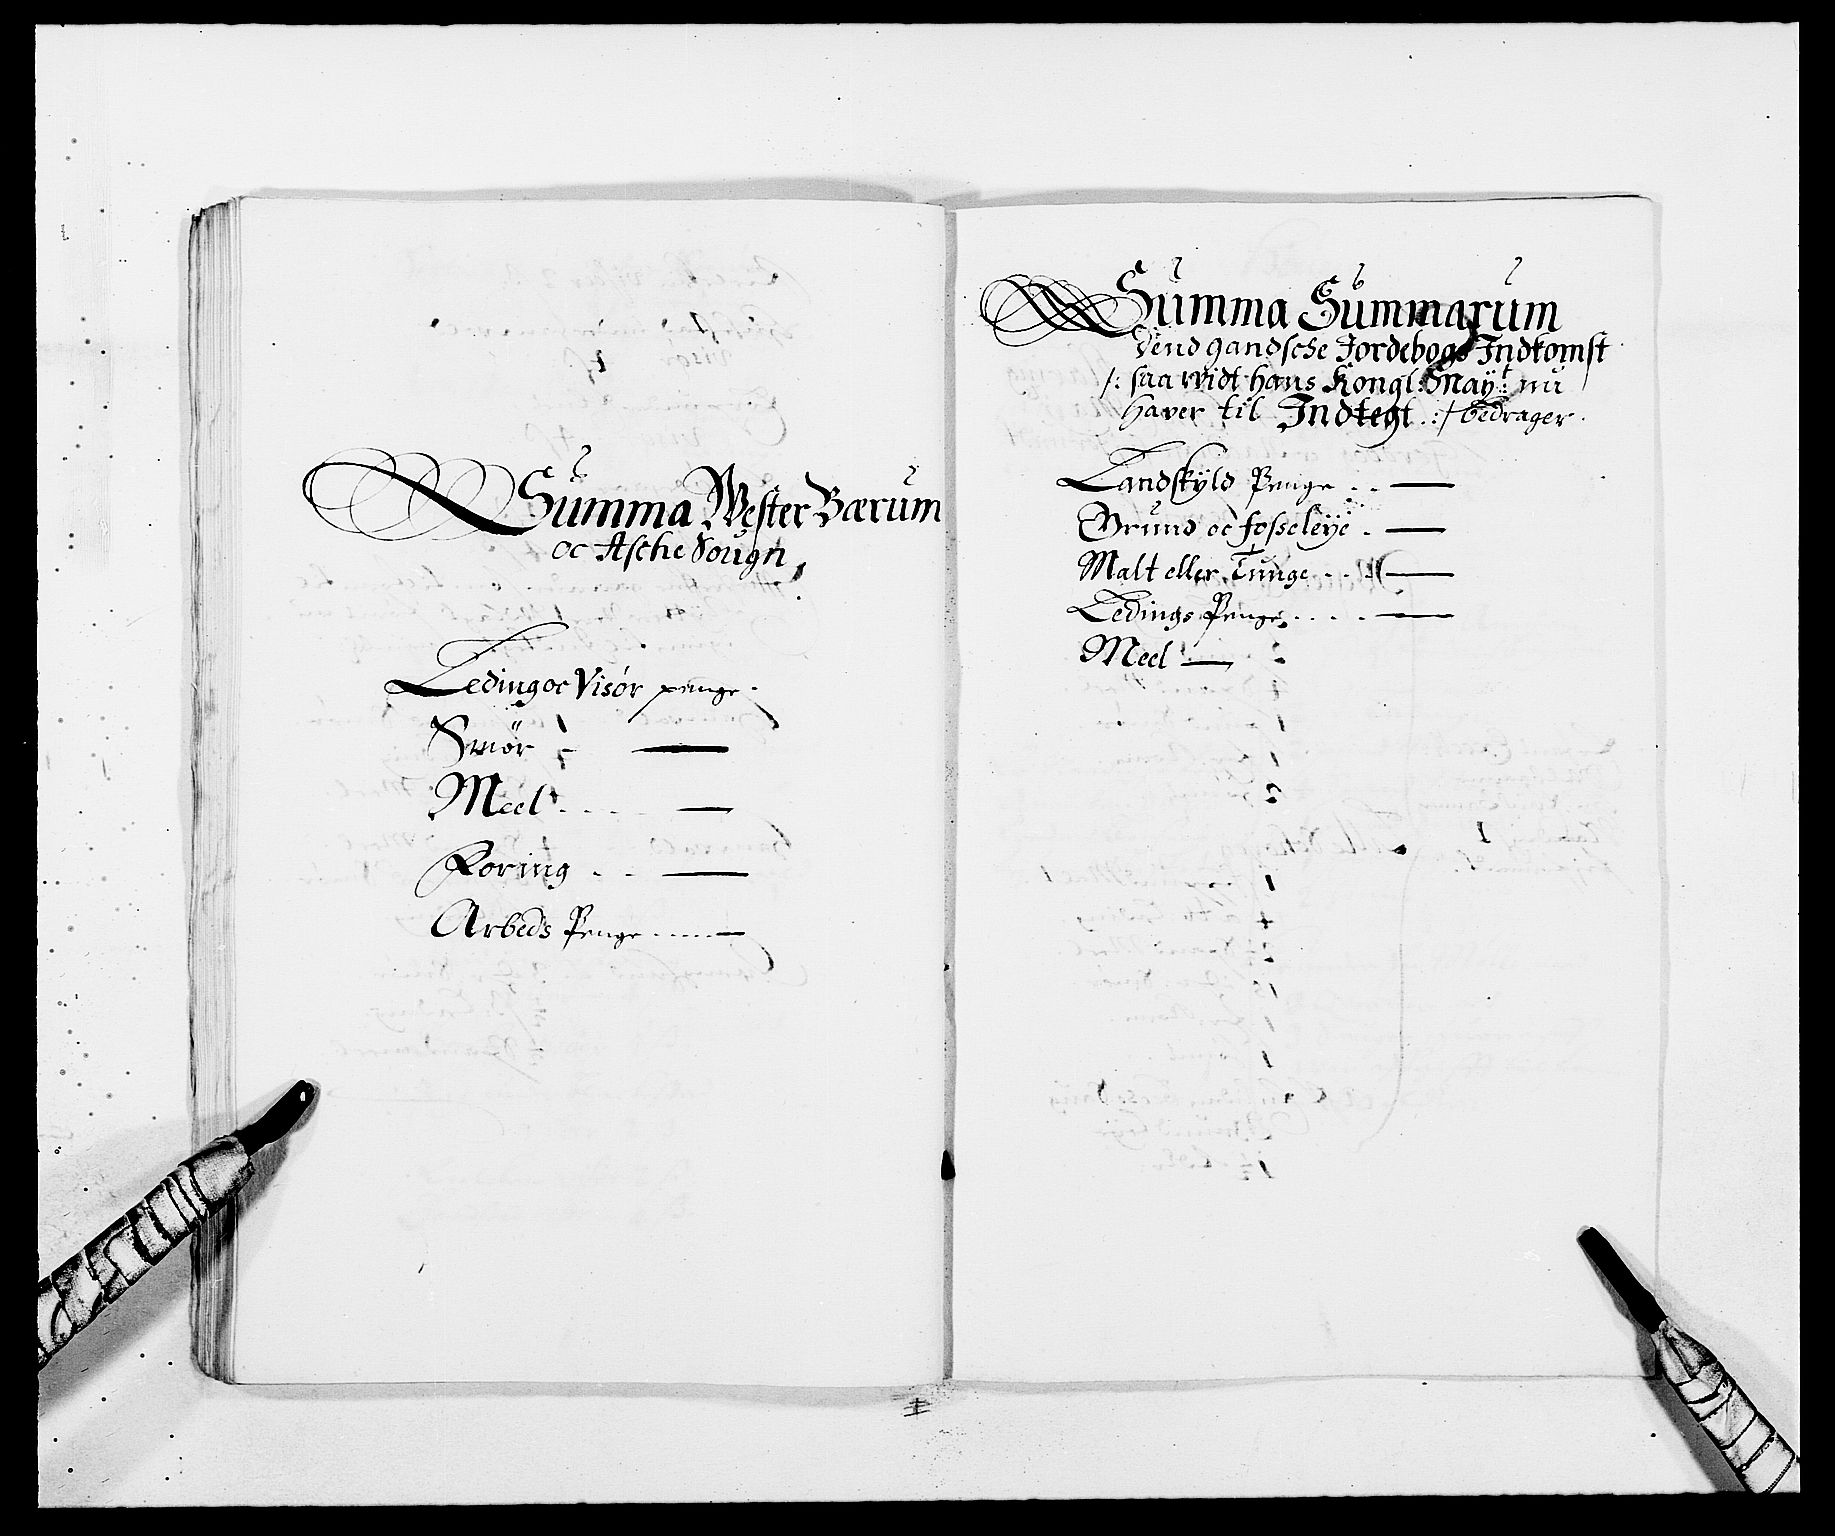 Summa Wester Bærum
oc Asche Sougn
Leding oc Visør penge.
Smør —
Meel . . . . —
Koring . . . —
Arbeds Penge ..... —
Summa Summarum
dend gandsche Jordebogs Indkomst
/: saa vvidt hans Kongl: May:t nu
haver til Indtegt .:/ bedrager.
Landskÿld Penge . . —
Grund oc fosseleÿe . —
Malt eller Tunge . . . —
Ledings Penge . . . . —
Meel —